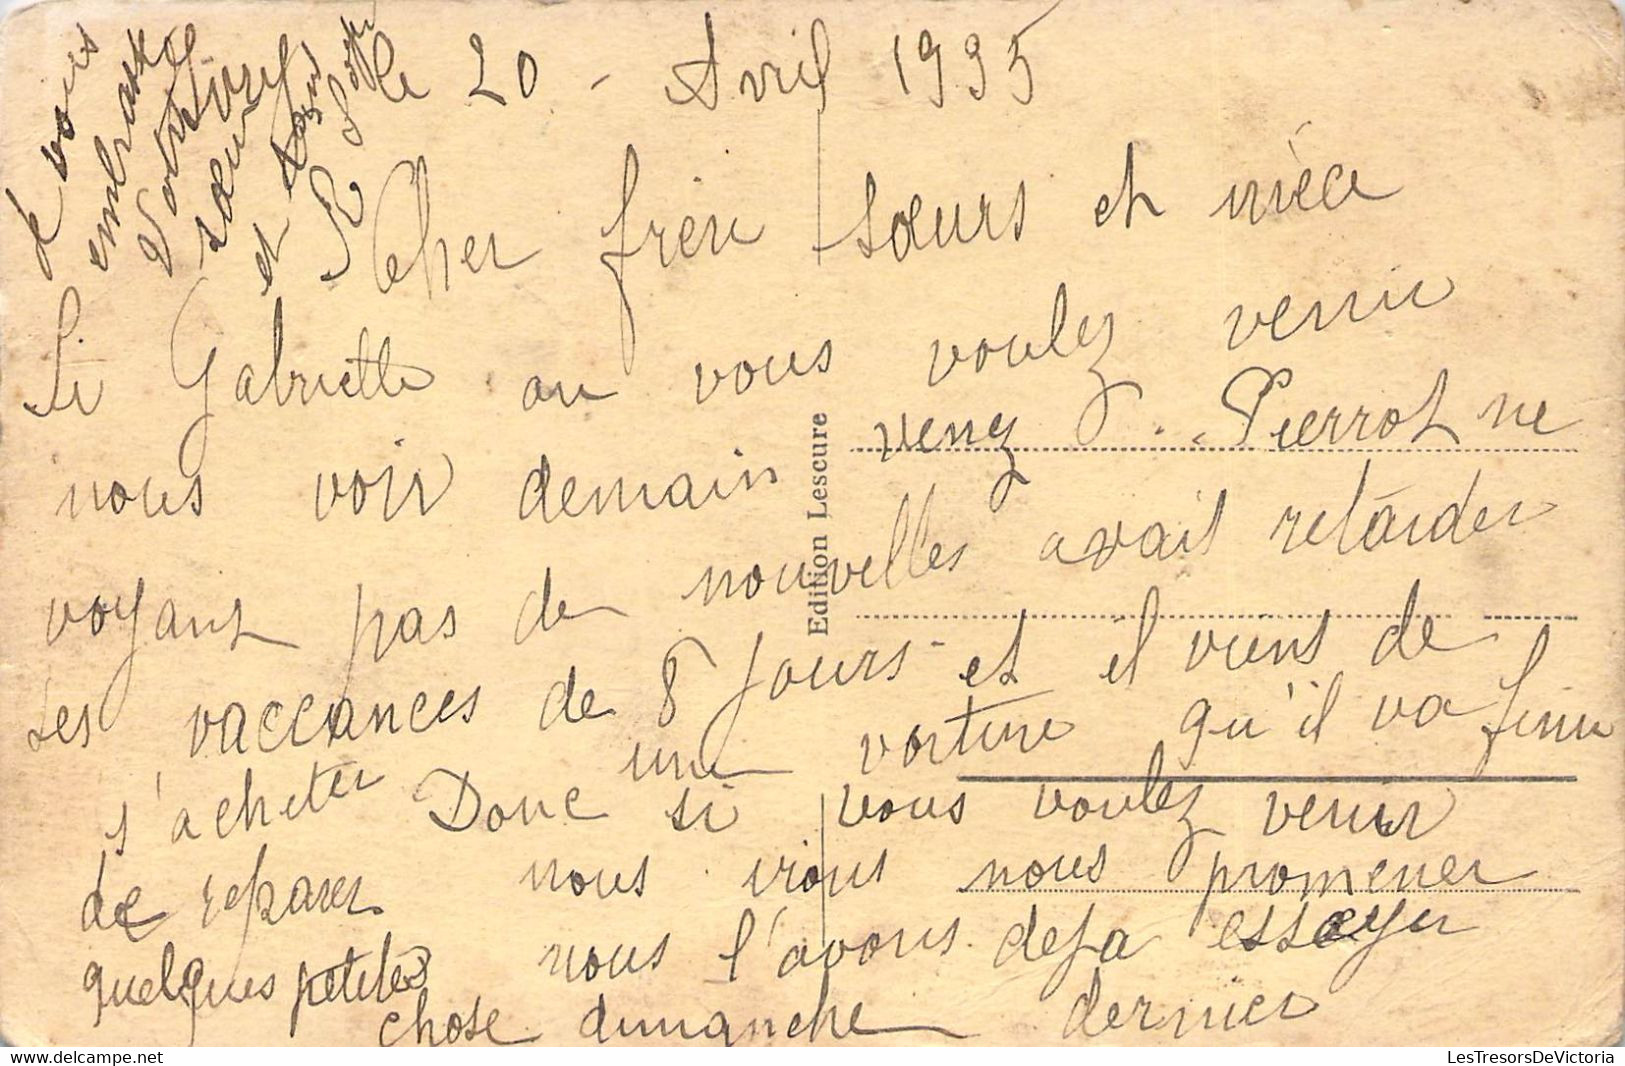 le 20 - Avril 1935
Cher frère soeurs et nièce
Si Gabrielle ou vous voulez venir
nous voir demain venez. Pierrot ne
voyant pas de nouvelles avait retarder
ses vaccances de 8 jours et il vient de
s'acheter une voiture qu'il va finir
de reparer Donc si vous voulez venir
quelques petites nous irons nous promener
chose nous l'avons deja essayer
dimanche dernier
Je vous
embrasse
Votre
soeur
et
Edition Lescure
LesTresorsDeVictoria
LesTresorsDeVictoria.com